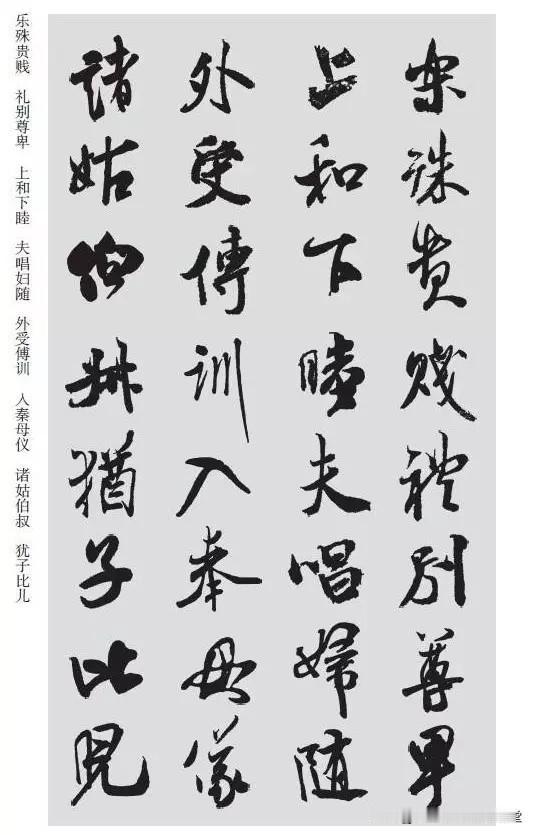 樂殊貴賤禮別尊卑
上和下睦夫唱婦隨
外受傅訓入奉母儀
諸姑伯叔猶子比兒
乐殊贵贱 礼别尊卑 上和下睦 夫唱妇随 外受傅训 入秦母仪 诸姑伯叔 犹子比儿